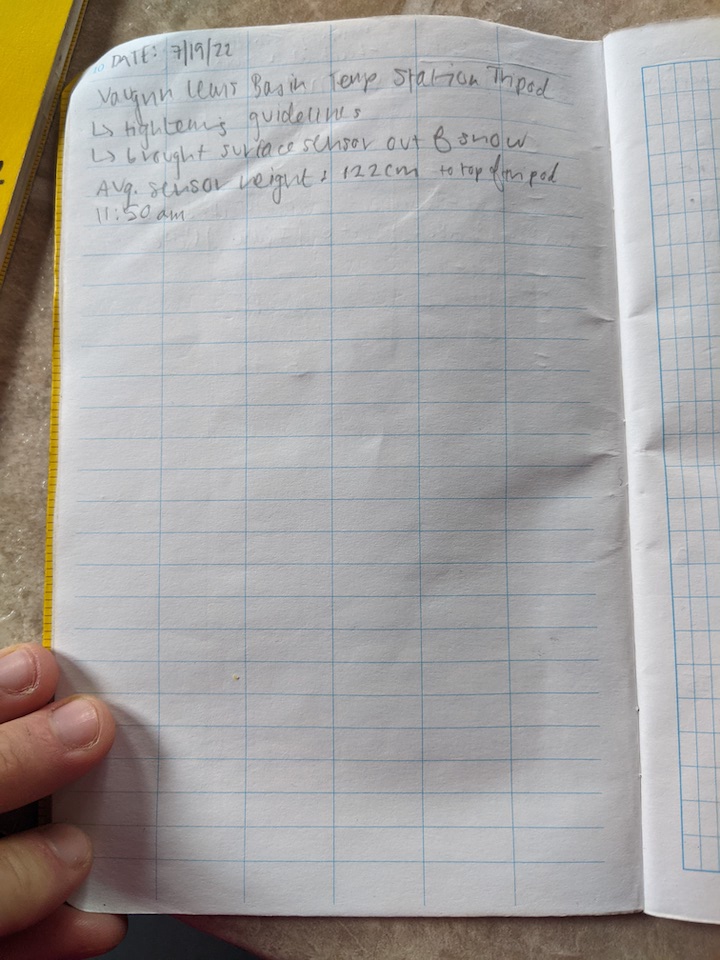 DATE: 7/19/22
Vaughn Lewis Basin Temp Station Tripod
↳ tightening guidelines
↳ brought surface sensor out of snow
Avg. sensor height: 122cm to top of tripod
11:50 am